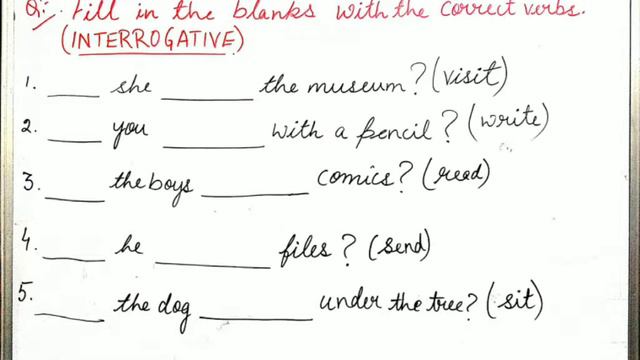 Q:- Fill in the blanks with the correct verbs.
(INTERROGATIVE)
1. ____ she ____ the museum? (visit)
2. ____ you ____ with a pencil? (write)
3. ____ the boys ____ comics? (read)
4. ____ he ____ files? (send)
5. ____ the dog ____ under the tree? (sit)